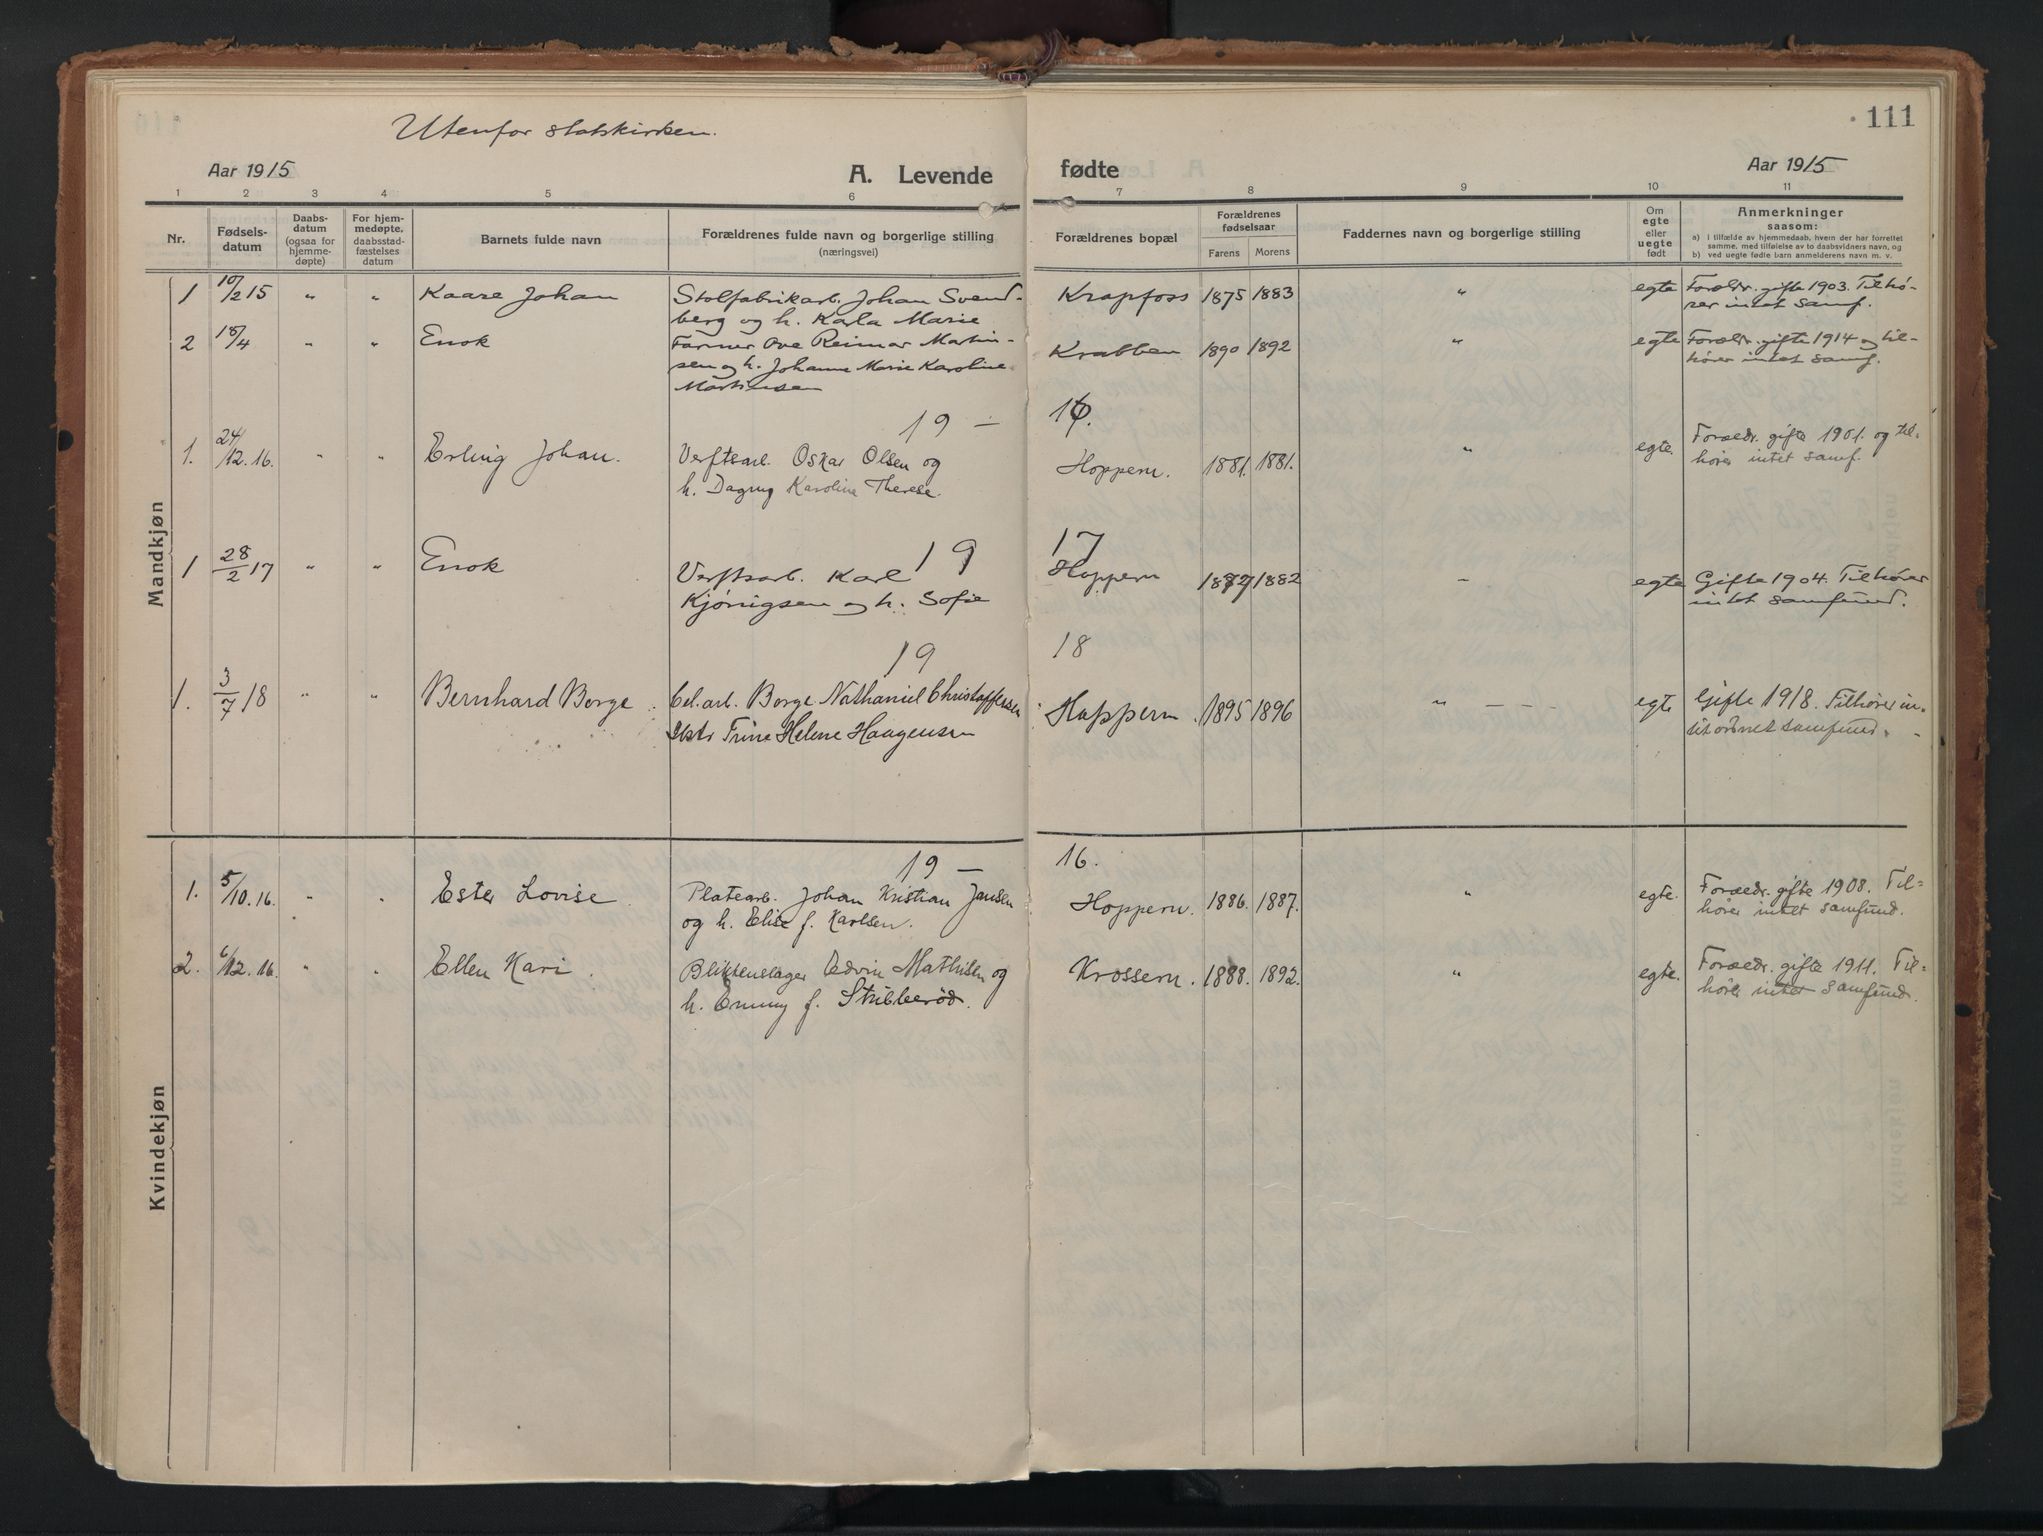 Utenfor statskirken.
111
Aar 1915
A. Levende
fødte
Aar 1915
1 2 3 4 5 6 7 8 9 10 11
Nr.
Fødsels-
datum
Daabs-
datum
(ogsaa for
hjemme-
døpte)
For hjem-
medøpte.
daabsstad-
fæstelses
datum
Barnets fulde navn
Forældrenes fulde navn og borgerlige stilling
(næringsvei)
Forældrenes bopæl
Forældrenes
fødselsaar
Farens Morens
Faddernes navn og borgerlige stilling
Om
egte
eller
uegte
født
Anmerkninger
saasom:
a) i tilfælde av hjemmedaab, hvem der har forrettet
samme, med tilføielse av to daabsvidners navn, og
b) ved uegte fødte barn anmelderens navn m. v.
Mandkjøn
1 10/2 15 " " Kaare Johan Stolfabrikarb. Johan Svend- Krapfoss 1875 1883 " egte Forældr. gifte 1903. Tilhø-
berg og h. Karla Marie rer intet samf.
2 18/4 " " Enok Farmer Ove Reimar Martin- Krabben 1890 1892 " egte Forældr. gifte 1914 og til-
sen og h. Johanne Marie Karoline hører intet samf.
Martinsen
19 — 16.
1. 24/12.16. " " Erling Johan. Verftsarb. Oskar Olsen og Hoppern. 1881. 1881. " egte. Foraedr. gifte 1901. og til-
h. Dagny Karoline Therese. hører intet samf.
19 17
1 28/2 17 " " Enok Verftsarb. Karl Hoppern 1882 – egte Gifte 1904. Tilhører
Kjønigsen og h. Sofie intet samfund.
19 18
1. 3/7 18 " " Bernhard Borge Cel. arb. Borge Nathaniel Christoffersen Hoppern 1895 1896 " – – – egte Gifte 1918. Tilhører in-
Trine Helene Haagensen tet ordnet samfund.
Kvindekjøn
19 — 16.
1. 5/10.16. " " Ester Lovise Platearb. Johan Kristian Jansen Hoppern. 1886. 1887. " egte. Foraedr. gifte 1908. Til-
og h. Elise f. Karlsen. hører intet samfund.
2. 6/12.16. " " Ellen Kari Blikkenslager Edvin Mathisen og Krossern. 1888. 1892. " egte. Foraedr. gifte 1911. Til-
h. Emmy f. Stribberød. hører intet samfund.